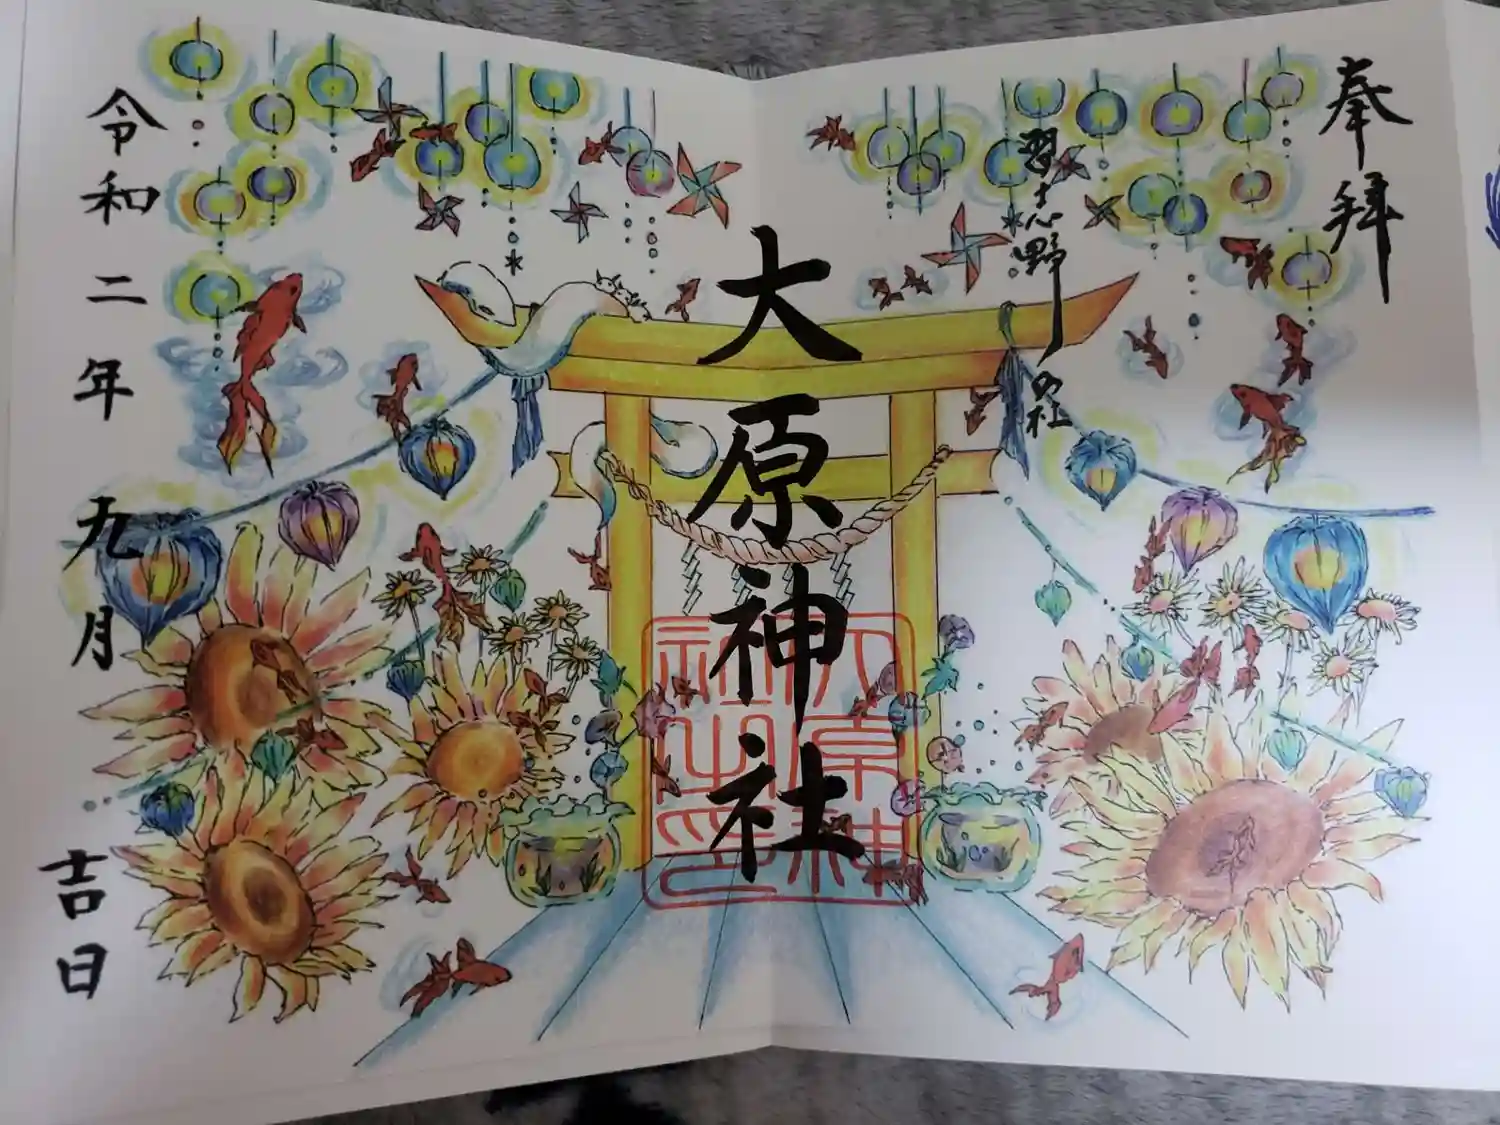 奉拝
習志野ノ杜
大原神社
大原神社之印
令和二年九月吉日